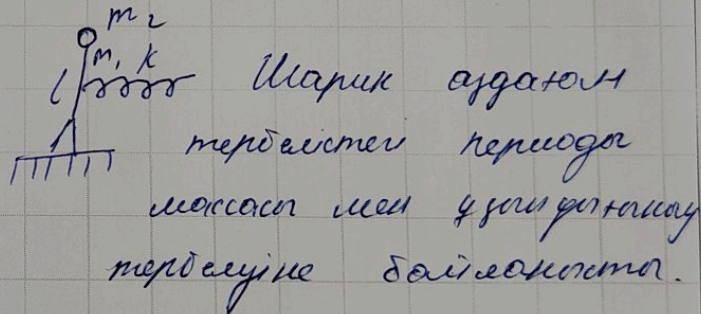 m 2
m, k
l
Шарик аздаюм
тербелістей периоды
массасы мен ұзындығының
тербелуіне байланысты.